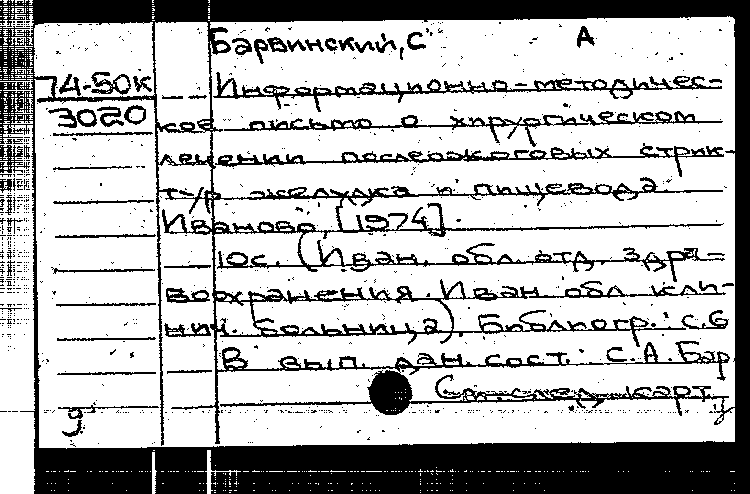 Барвинский, С А
74-50к
3020
Информационно-методичес-
кое письмо о хирургическом
лечении послеожоговых стрик-
тур желудка и пищевода
Иваново, [1974].
10с. (Иван. обл. отд. здра-
воохранения. Иван. обл. кли-
нич. больница). Библиогр.: с.6
В вып. дан. сост.: С.А. Бар
См. след. карт.